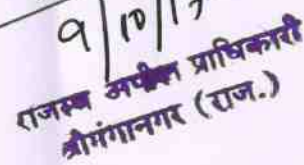 9/10/17
राजस्व अपील प्राधिकारी
श्रीगंगानगर (राज.)